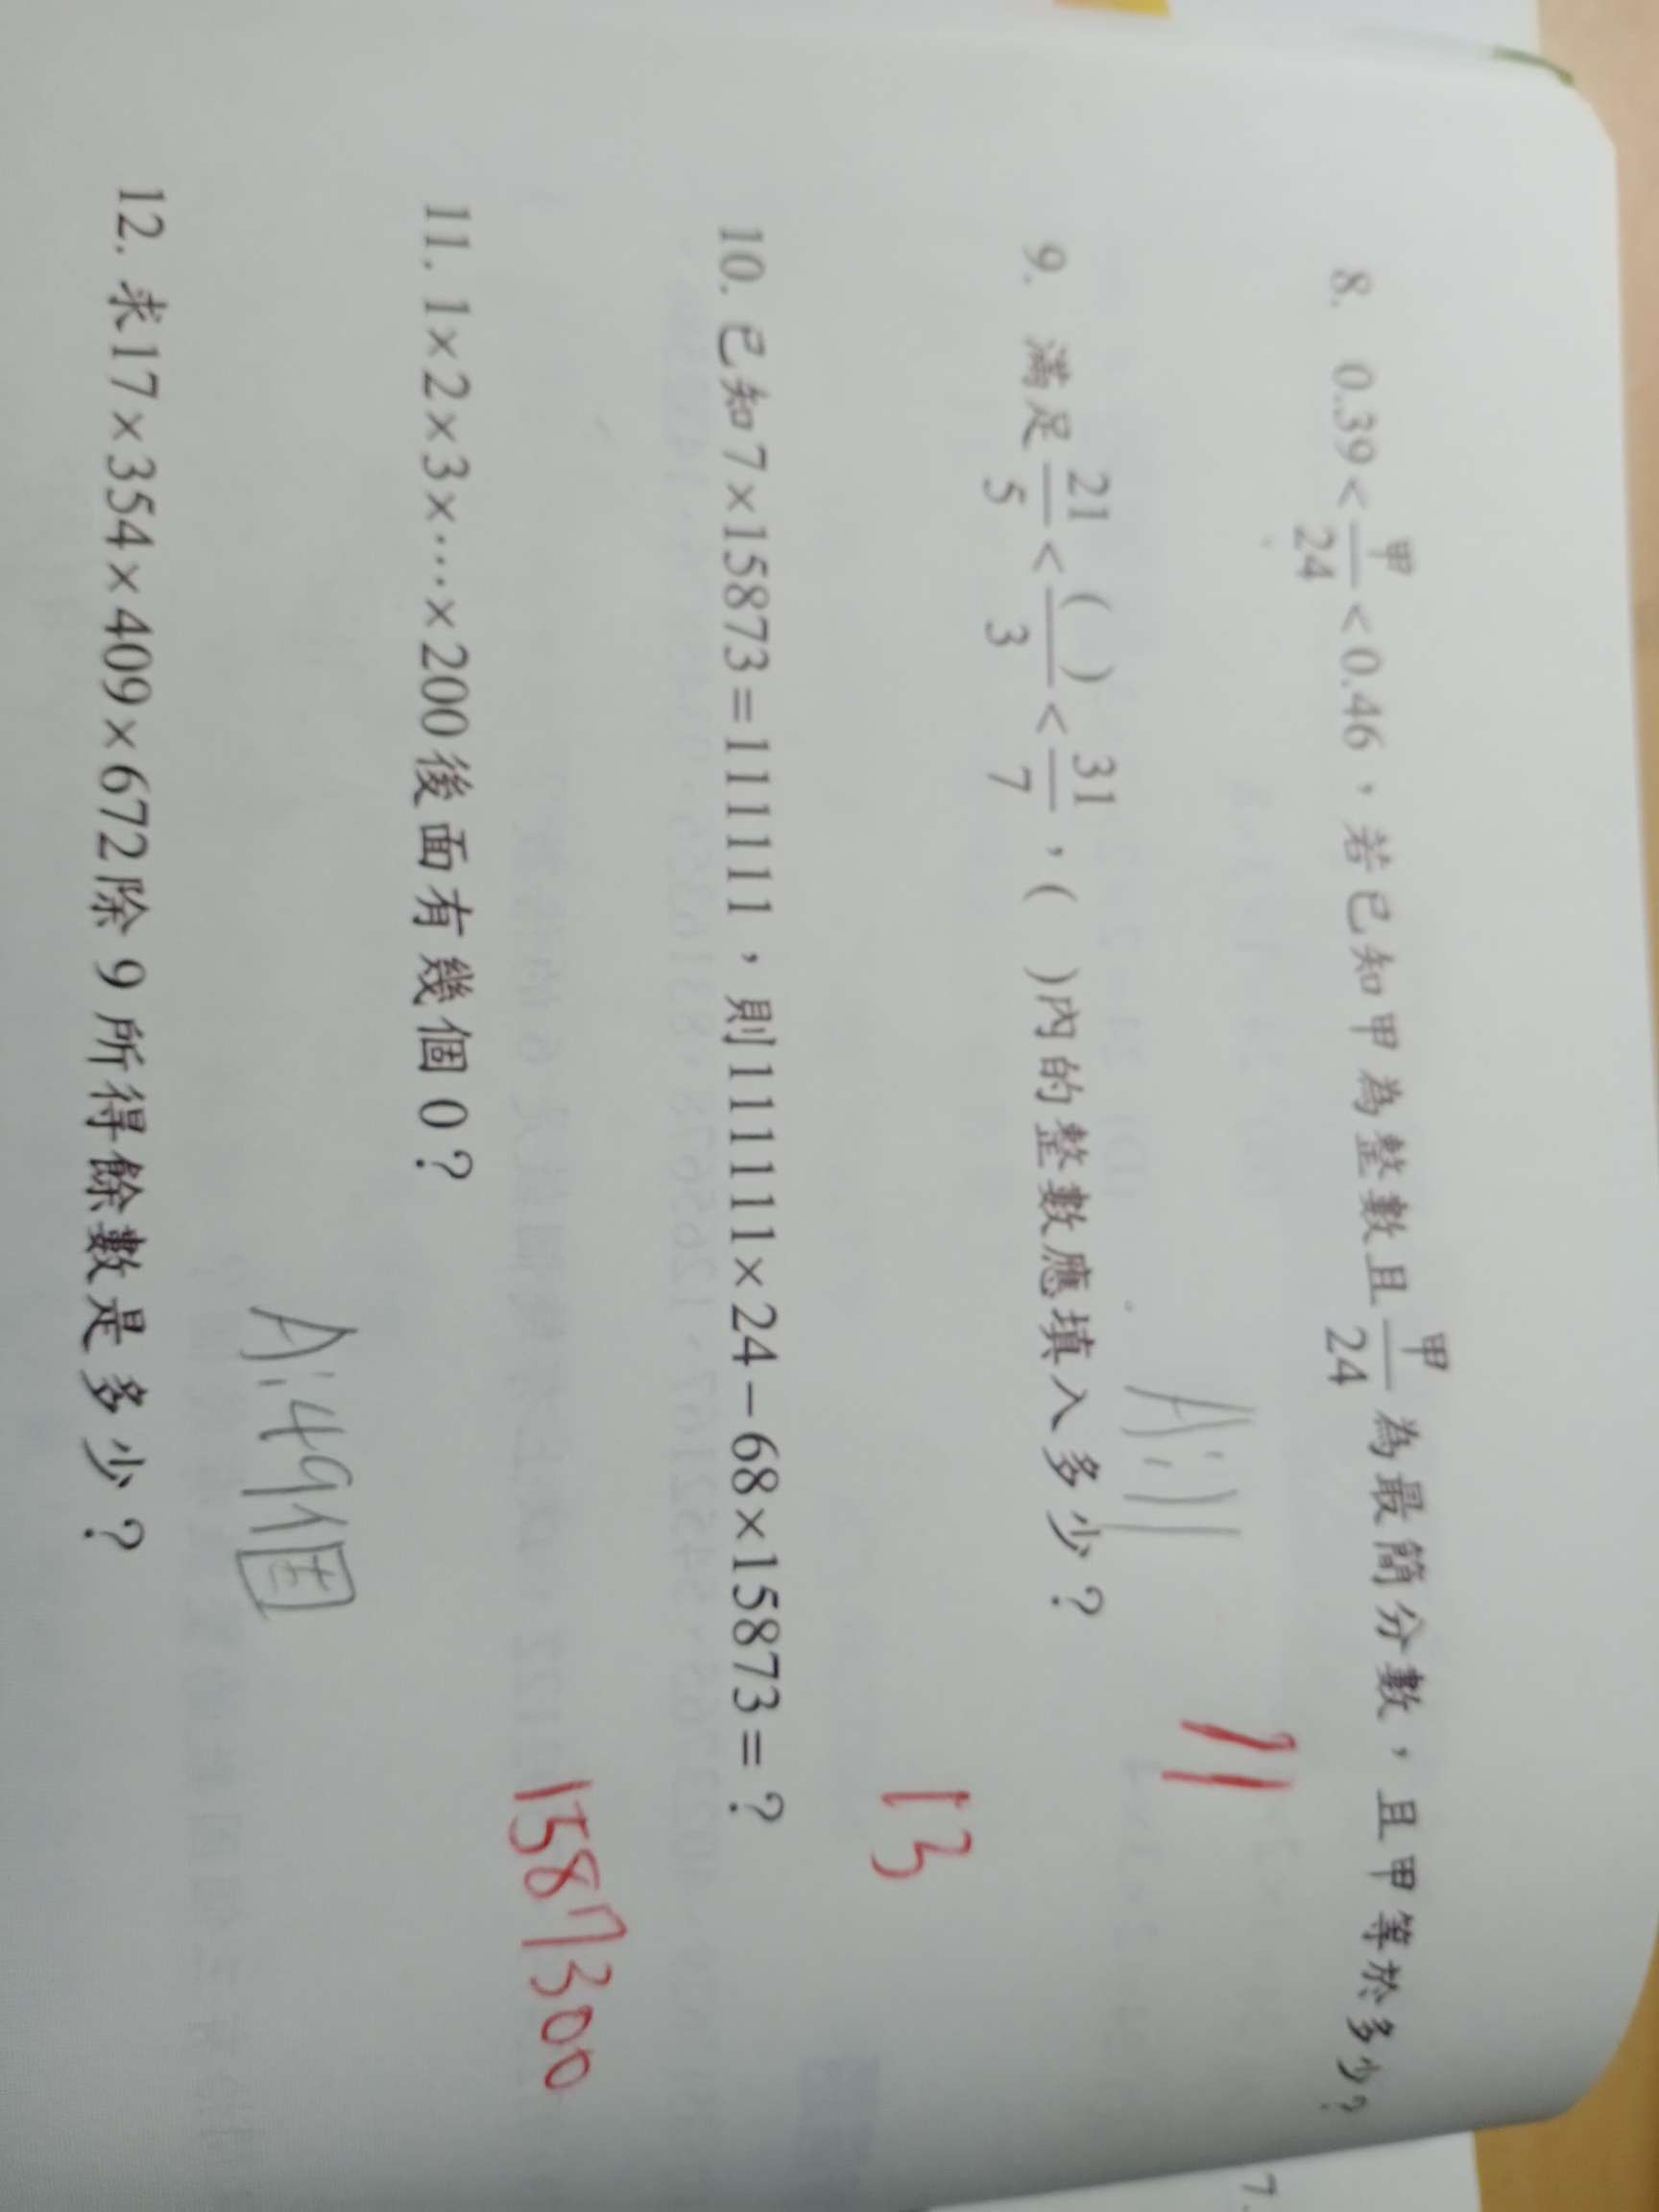 8. 0.39<甲/24<0.46,若已知甲為整數且甲/24為最簡分數,且甲等於多少?
A:11
11
9. 滿足21/5<( )/3<31/7,( )內的整數應填入多少?
13
10. 已知7×15873=111111,則111111×24-68×15873=?
1587300
11. 1×2×3×…×200後面有幾個0?
A:49個
12. 求17×354×409×672除9所得餘數是多少?
7.